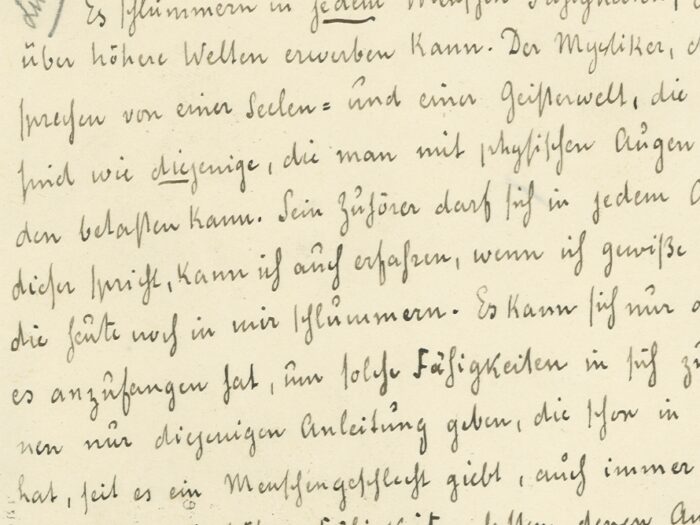 Es schlummern in jedem Menschen Fähigkeiten,
über höhere Welten erwerben kann. Der Mystiker,
sprechen von einer Seelen= und einer Geisterwelt, die
sind wie diejenige, die man mit physischen Augen
den betasten kann. Sein Zuhörer darf sich in jedem A
dieser spricht, kann ich auch erfahren, wenn ich gewiße
die heute noch in mir schlummern. Es kann sich nur
es anzufangen hat, um solche Fähigkeiten in sich zu
nen nur diejenigen Anleitung geben, die schon in
hat, seit es ein Menschengeschlecht giebt, auch immer
denen